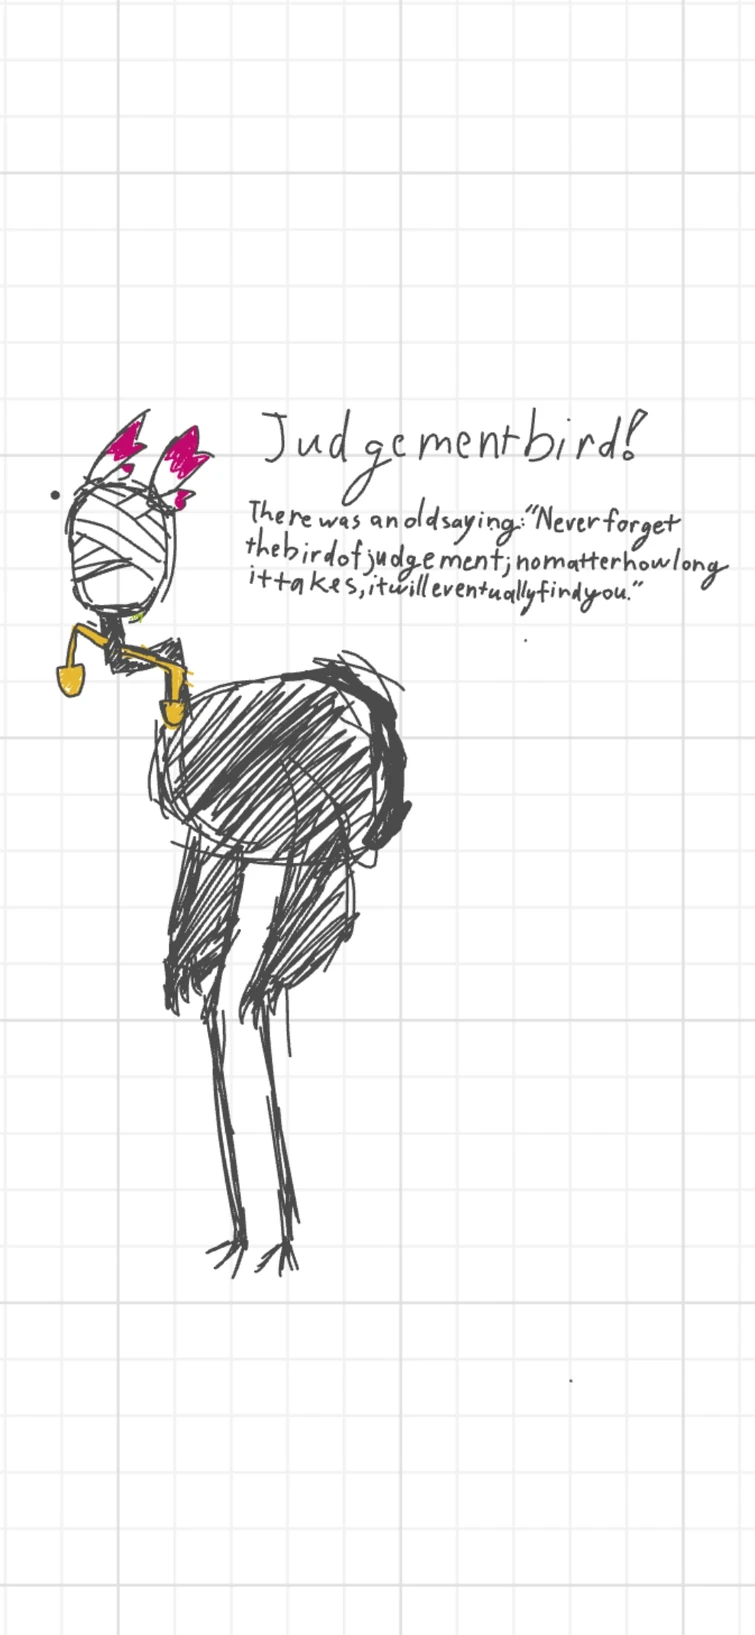 Judgement bird!
There was an old saying: "Never forget
the bird of judgement; no matter how long
it takes, it will eventually find you."